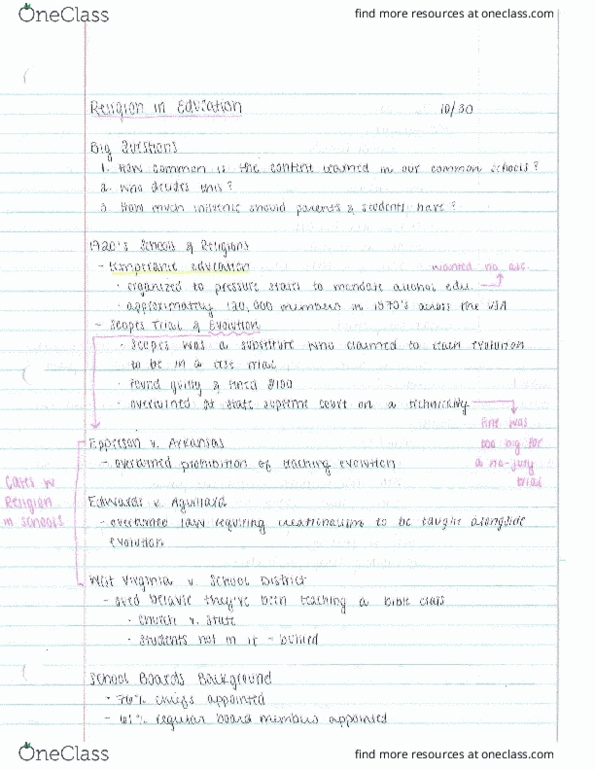 OneClass
find more resources at oneclass.com
Religion in Education 10/30
Big Questions
1. How common is the content learned in our common schools?
2. Who decides this?
3. How much influence should parents & students have?
1920's Schools & Religions
- Temperance education
wanted no alc.
· organized to pressure states to mandate alcohol edu.
· approximately 120,000 members in 1870's across the USA
- Scopes Trial & Evolution
· Scopes was a substitute who claimed to teach evolution
to be in a test trial
· found guilty & fined $100
· overturned at state supreme court on a technicality
fine was
too big for
a no-jury
trial
Cases w
Religion
in schools
Epperson v. Arkansas
- overturned prohibition of teaching evolution
Edwards v. Aguillard
- overturned law requiring creationism to be taught alongside
evolution
West Virginia v. School District
- sued because they've been teaching a bible class
· church v. state
· students not in it - bullied
School Boards Background
· chiefs appointed
· regular board members appointed
OneClass
find more resources at oneclass.com